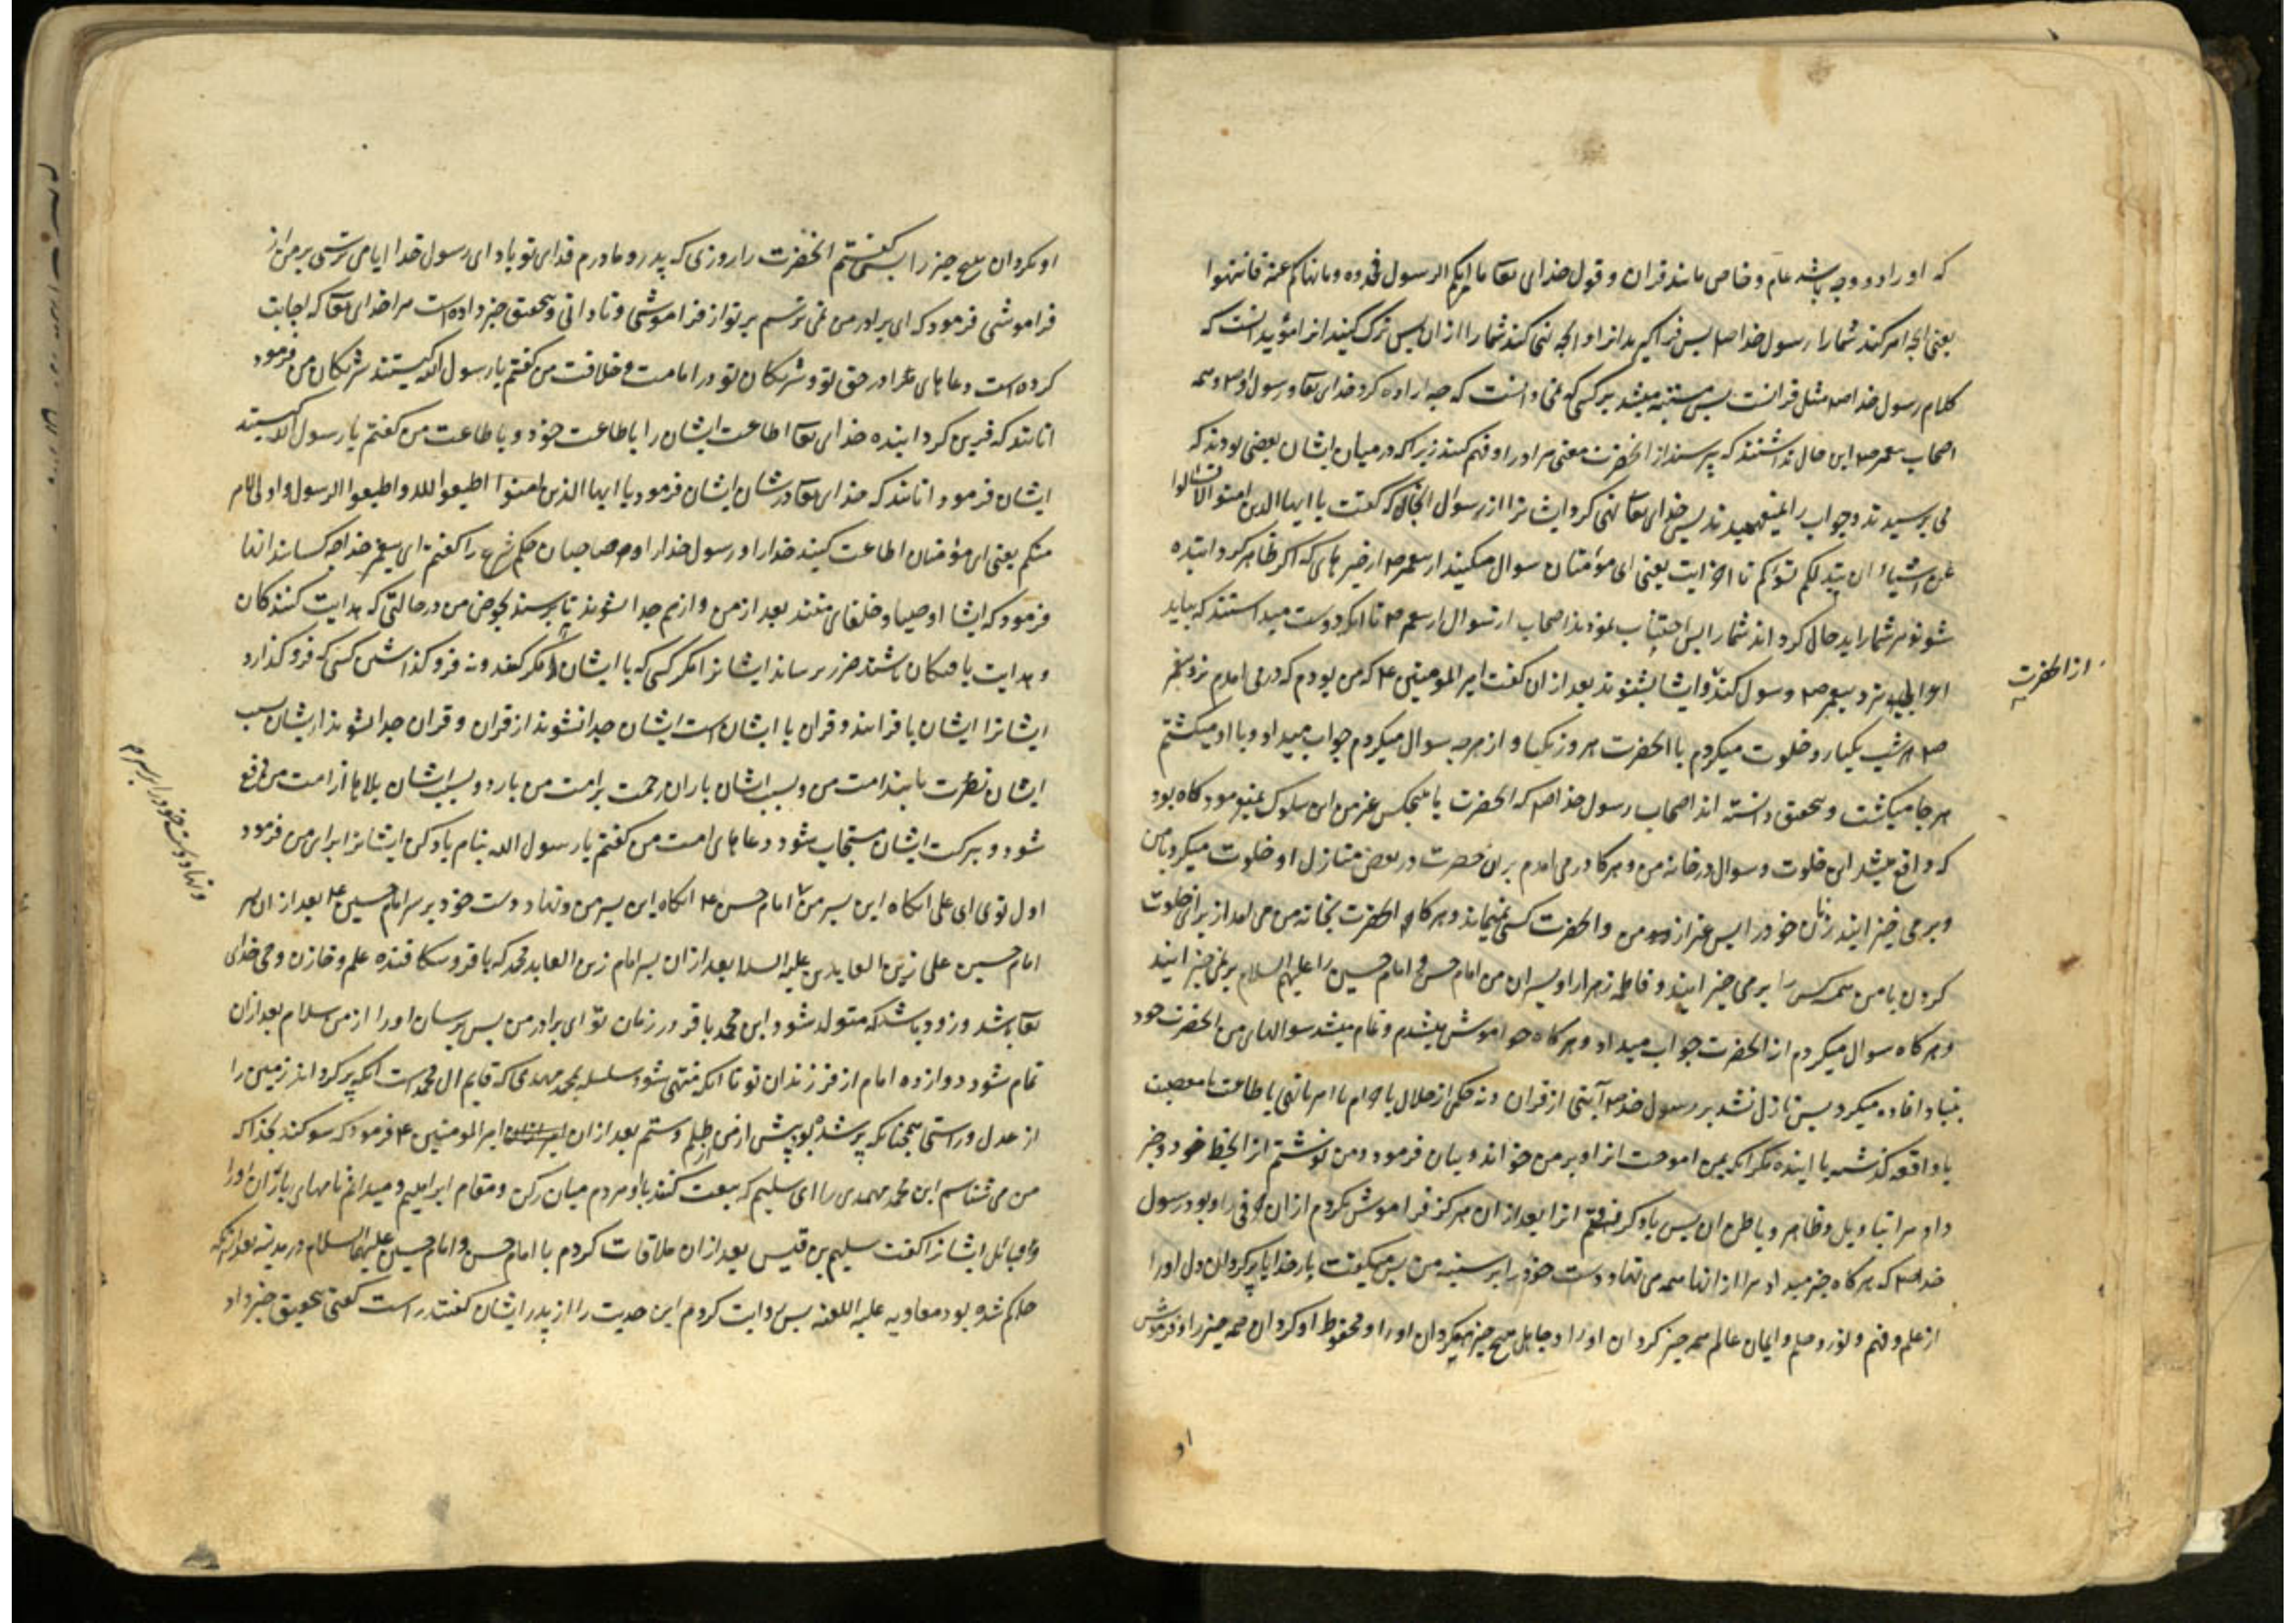 که او را دو وجه باشد عام و خاص مانند قران و قول خدای تعا ما اتیکم الرسول فخذوه و مانهاکم عنه فانتهوا
یعنی انچه امر کند شمارا رسول خدا صه پس فراکیرید انرا و انچه نهی کند شمارا ازان پس ترک کنید انرا مؤید انست که
کلام رسول خدا صه مثل قرانست پس مشتبه میشد بر کسی که نمی دانست که چه اراده کرد خدای تعا و رسول او صه و همه
اصحاب پیغمبر صه این حال نداشتند که پرسند از انحضرت معنی مراد را و فهم کنند زیرا که در میان ایشان بعضی بودند که
می پرسیدند و جواب را نمیفهمیدند پس خدای تعا نهی کرد ایشانرا از سوال انچنانکه گفت یا ایها الذین امنوا لا تسالوا
عن اشیاء ان تبدلکم تسؤکم تا اخر ایت یعنی ای مؤمنان سوال مکنید از پیغمبر صه از خبر های که اکر ظاهر کردانیده
شوند مر شمارا بد حال کرداند شمارا پس اجتناب نمودند اصحاب از سوال از پیغمبر صه تا انکه دوست میداشتند که بیاید
اعرابی نزد پیغمبر صه و سول کند و ایشان بشنوند بعد ازان گفت امیر المومنین ع که من بودم که درمی امدم نزد پیغمبر
از انحضرت
صه هر شب یکبار و خلوت میکردم با انحضرت هر روز یکبار و از هرچه سوال میکردم جواب میداد و با او میکشتم
هر جا میکشت و بتحقیق دانسته اند اصحاب رسول خدا صه که انحضرت با هیچکس غیر من این سلوک نمیفرمود کاه بود
که واقع میشد این خلوت و سوال در خانه من و هرکاه درمی امدم بران حضرت در بعض منازل او خلوت میکرد با من
و برمی خیزانیدند زنان خود را پس غیر از من و انحضرت کسی نمیماند و هرکاه انحضرت بخانه من می امد از برای خلوت
کردن با من همه کس را برمی خیزانید و فاطمه زهرا را و پسران من امام حسن و امام حسین را علیهم السلام برنمی خیزانید
و هرکاه سوال میکردم از انحضرت جواب میداد و هرکاه خواموش میشدم و تمام میشد سوالهای من انحضرت خود
بنیاد افاده میکرد پس نازل نشد بر رسول خدا صه آیتی از قران و نه حکمی از حلال یا حرام یا امر یا نهی یا طاعت یا معصیت
یا واقعه کذشته یا اینده مکر انکه بمن اموخت انرا و بر من خواند و بیان فرمود و من نوشتم انرا بخط خود و خبر
داد مرا بتاویل و ظاهر و باطن ان پس یاد کرفتم انرا بعد ازان هرکز فراموش نکردم ازان حرفی را و بود رسول
خدا صه که هرکاه خبر میداد مرا از انها همه می نهاد دست خود را بر سینه من پس میکفت بار خدایا پر کردان دل او را
از علم و فهم و نور و حلم و ایمان عالم همه چیز کردان او را و جاهل هیچ چیز مکردان او را و محفوظ او کردان همه چیز را و فرموش
او
او مکردان هیچ چیز را پس کفتم انحضرت را روزی که پدر و مادرم فدای تو باد ای رسول خدا ایا می ترسی بر من از
فراموشی فرمود که ای برادر من نمی ترسم بر تو از فراموشی و نادانی و بتحقیق خبر داده است مرا خدای تعا که اجابت
کرده است دعاهای مرا در حق تو و شریکان تو در امامت و خلافت من کفتم یا رسول الله کیستند شریکان من فرمود
انانند که قرین کردانیده خدای تعا اطاعت ایشان را باطاعت خود و باطاعت من کفتم یا رسول الله کیستند
ایشان فرمود انانند که خدای تعا در شان ایشان فرمود یا ایها الذین امنوا اطیعوا الله و اطیعوا الرسول و اولی الامر
منکم یعنی ای مؤمنان اطاعت کنید خدا را و رسول خدا را و صاحبان حکم شرع را کفتم ای پیغمبر خدا چه کسانند انها
فرمود که ایشان اوصیا و خلفای منند بعد از من و از هم جدا نشوند تا برسند بحوض من در حالتی که هدایت کنندکان
و هدایت یافتکان باشند ضرر نرساند ایشانرا مکر کسی که با ایشان مکر کند و نه فرو کذاشتن کسی که فرو کذارد
ایشانرا ایشان با قرانند و قران با ایشانست ایشان جدا نشوند از قران و قران جدا نشود از ایشان بسبب
ایشان نصرت یابند امت من و بسبب ایشان باران رحمت بر امت من بارد و بسبب ایشان بلاها از امت من دفع
شود و ببرکت ایشان مستجاب شود دعاهای امت من کفتم یا رسول الله بنام یاد کن ایشانرا برای من فرمود
و نهاد دست خود را بر سرم
اول توی ای علی انکاه این پسر من امام حسن ع انکاه این پسر من و نهاد دست خود بر سر امام حسین ع بعد ازان پسر
امام حسین علی زین العابدین علیه السلام بعد ازان پسر امام زین العابد محمد که باقر و شکافنده علم و خازن وحی خدای
تعا باشد و زود باشد که متولد شود این محمد باقر در زمان تو ای برادر من پس برسان او را از من سلام بعد ازان
تمام شود دوازده امام از فرزندان تو تا انکه منتهی شود سلسله بمحمد مهدی که قایم ال محمد است انکه پر کرداند زمین را
از عدل و راستی همچنانکه پر شده بود پیش ازین از ظلم و ستم بعد ازان امیر المومنین ع فرمود که سوکند بخدا که
من می شناسم این محمد مهدی را ای سلیم که بیعت کنند با او مردم میان رکن و مقام ابراهیم و میدانم نامهای یاران او را
و قبائل ایشانرا کفت سلیم بن قیس بعد ازان ملاقات کردم با امام حسن و امام حسین علیهما السلام در مدینه بعد ازانکه
حاکم شده بود معاویه علیه اللعنه پس روایت کردم این حدیث را از پدر ایشان کفتند راست کفتی بتحقیق خبر داد